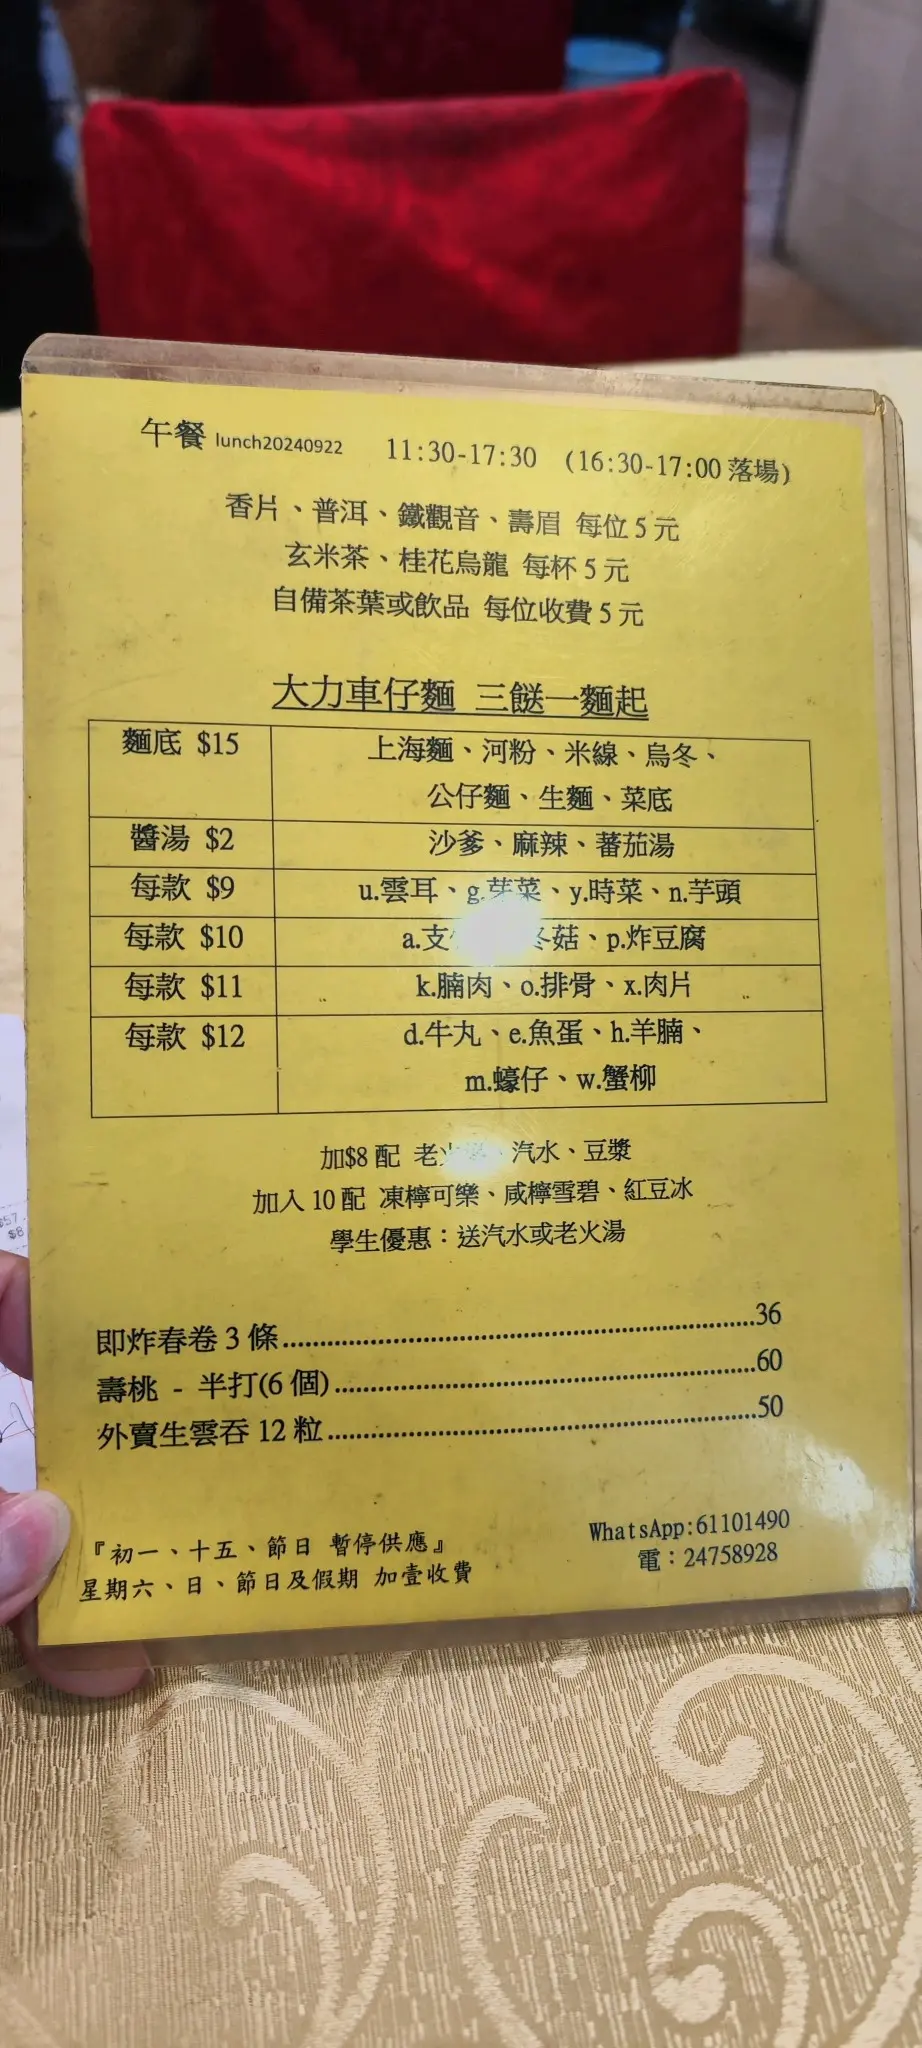 午餐 lunch20240922 11:30-17:30 (16:30-17:00 落場)
香片、普洱、鐵觀音、壽眉 每位 5 元
玄米茶、桂花烏龍 每杯 5 元
自備茶葉或飲品 每位收費 5 元
大力車仔麵 三餸一麵起
麵底 $15 上海麵、河粉、米線、烏冬、
公仔麵、生麵、菜底
醬湯 $2 沙爹、麻辣、蕃茄湯
每款 $9 u.雲耳、g.芽菜、y.時菜、n.芋頭
每款 $10 a.支 冬菇、p.炸豆腐
每款 $11 k.腩肉、o.排骨、x.肉片
每款 $12 d.牛丸、e.魚蛋、h.羊腩、
m.蠔仔、w.蟹柳
加$8 配 老火 、汽水、豆漿
加入 10 配 凍檸可樂、咸檸雪碧、紅豆冰
學生優惠：送汽水或老火湯
即炸春卷 3 條 36
壽桃 - 半打(6 個) 60
外賣生雲吞 12 粒 50
『初一、十五、節日 暫停供應』
星期六、日、節日及假期 加壹收費
WhatsApp:61101490
電：24758928
$57
$8